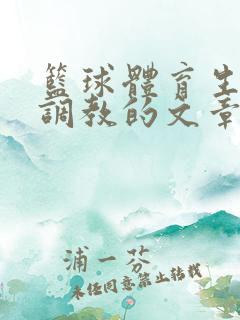 籃球體育生
調教的文章
浦一芬
未经同意禁止转载